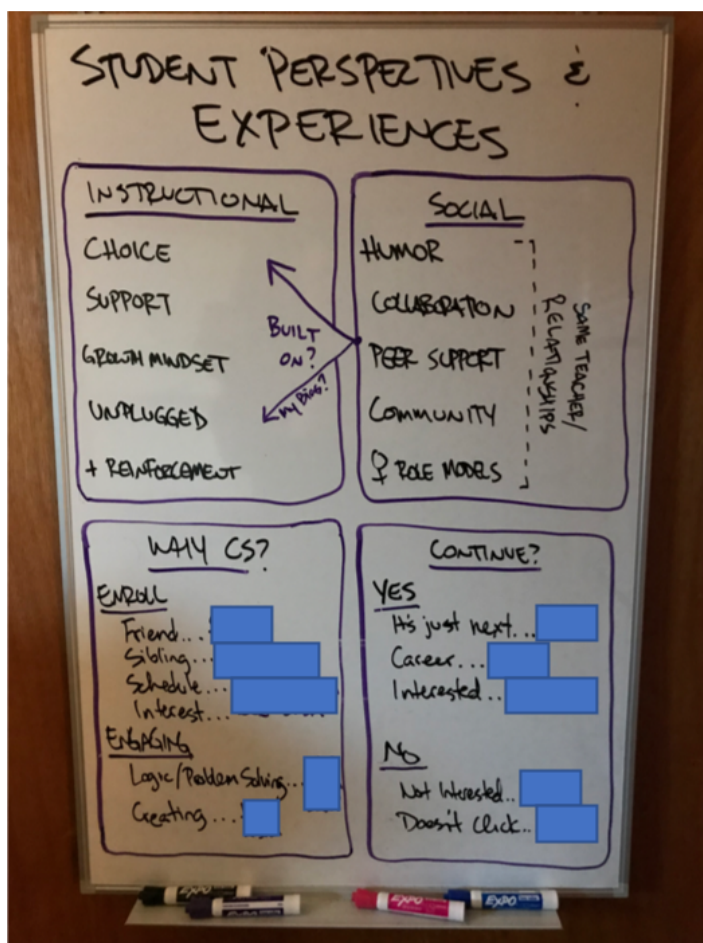 STUDENT PERSPECTIVES &
EXPERIENCES
INSTRUCTIONAL
CHOICE
SUPPORT
GROWTH MINDSET
UNPLUGGED
+ REINFORCEMENT
BUILT
ON?
My Bias?
SOCIAL
HUMOR
COLLABORATION
PEER SUPPORT
COMMUNITY
♀ ROLE MODELS
SAME TEACHER/
RELATIONSHIPS
WHY CS?
ENROLL
Friend...
Sibling...
Schedule...
Interest...
ENGAGING
Logic/Problem Solving...
Creating...
CONTINUE?
YES
It's just next...
Career...
Interested..
NO
Not Interested..
Doesn't Click..
EXPO
EXPO
EXPO